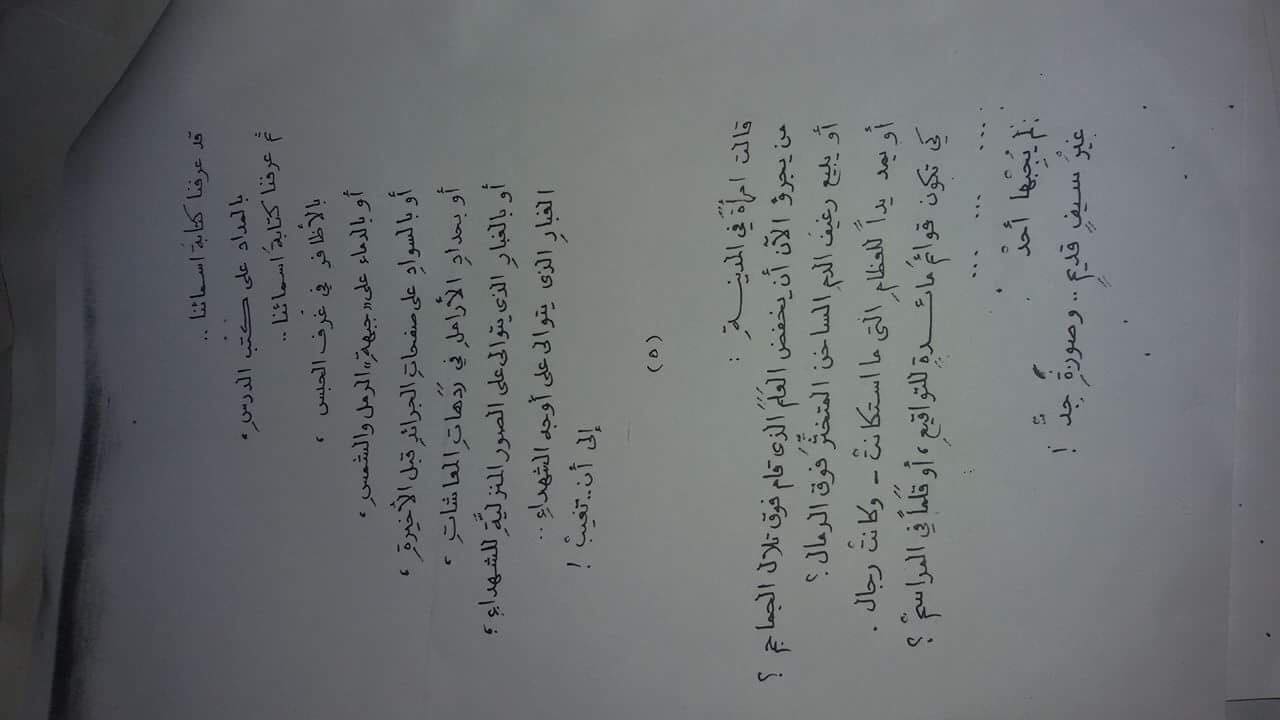 قد عرفنا كتابةَ أسمائنا ..
بالمداد على كُتُب الدرسِ ،
ثم عرفنا كتابةَ أسمائنا ..
بالأظافر في غرف الحبس ،
أو بالدماء على «جبهةِ» الرمل والشمسِ ،
أو بالسوادِ على صفحاتِ الجرائدِ قبل الأخيرةِ ،
أو بحدادِ الأراملِ في ردَهاتِ المعاشاتِ ،
أو بالغبارِ الذي يتوالى على الصور المنزليَّةِ للشهداءِ ،
الغبارِ الذي يتوالى على أوجه الشهداءِ ..
إلى أن .. تغيبْ !
(٥)
قالت امرأةٌ في المدينــةِ :
من يجرؤ الآن أن يخفض العلَمَ الذي قام فوق تلال الجماجم ؟
أو يبيع رغيفَ الدمِ الساخن المتخثِّر فوق الرمال ؟
أو يمد يداً للعظامِ التي ما استكانتْ - وكانت رجال .
كي تكون قوائمَ مائــدةٍ للتواقيعِ ، أو قلَماً في المراسمْ ؟
... ... ... ...
لم يُجبْها أحدْ
غيرُ سيفٍ قديمٍ .. وصورةِ جَدّْ !